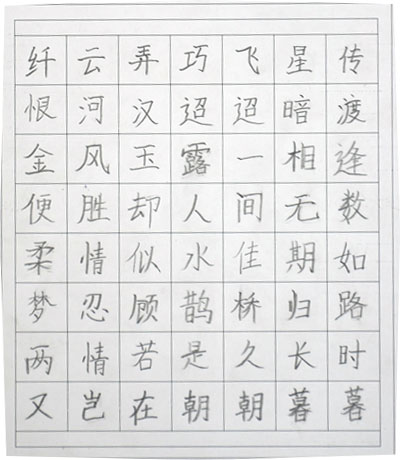 纤云弄巧飞星传
恨河汉迢迢暗渡
金风玉露一相逢
便胜却人间无数
柔情似水佳期如
梦忍顾鹊桥归路
两情若是久长时
又岂在朝朝暮暮